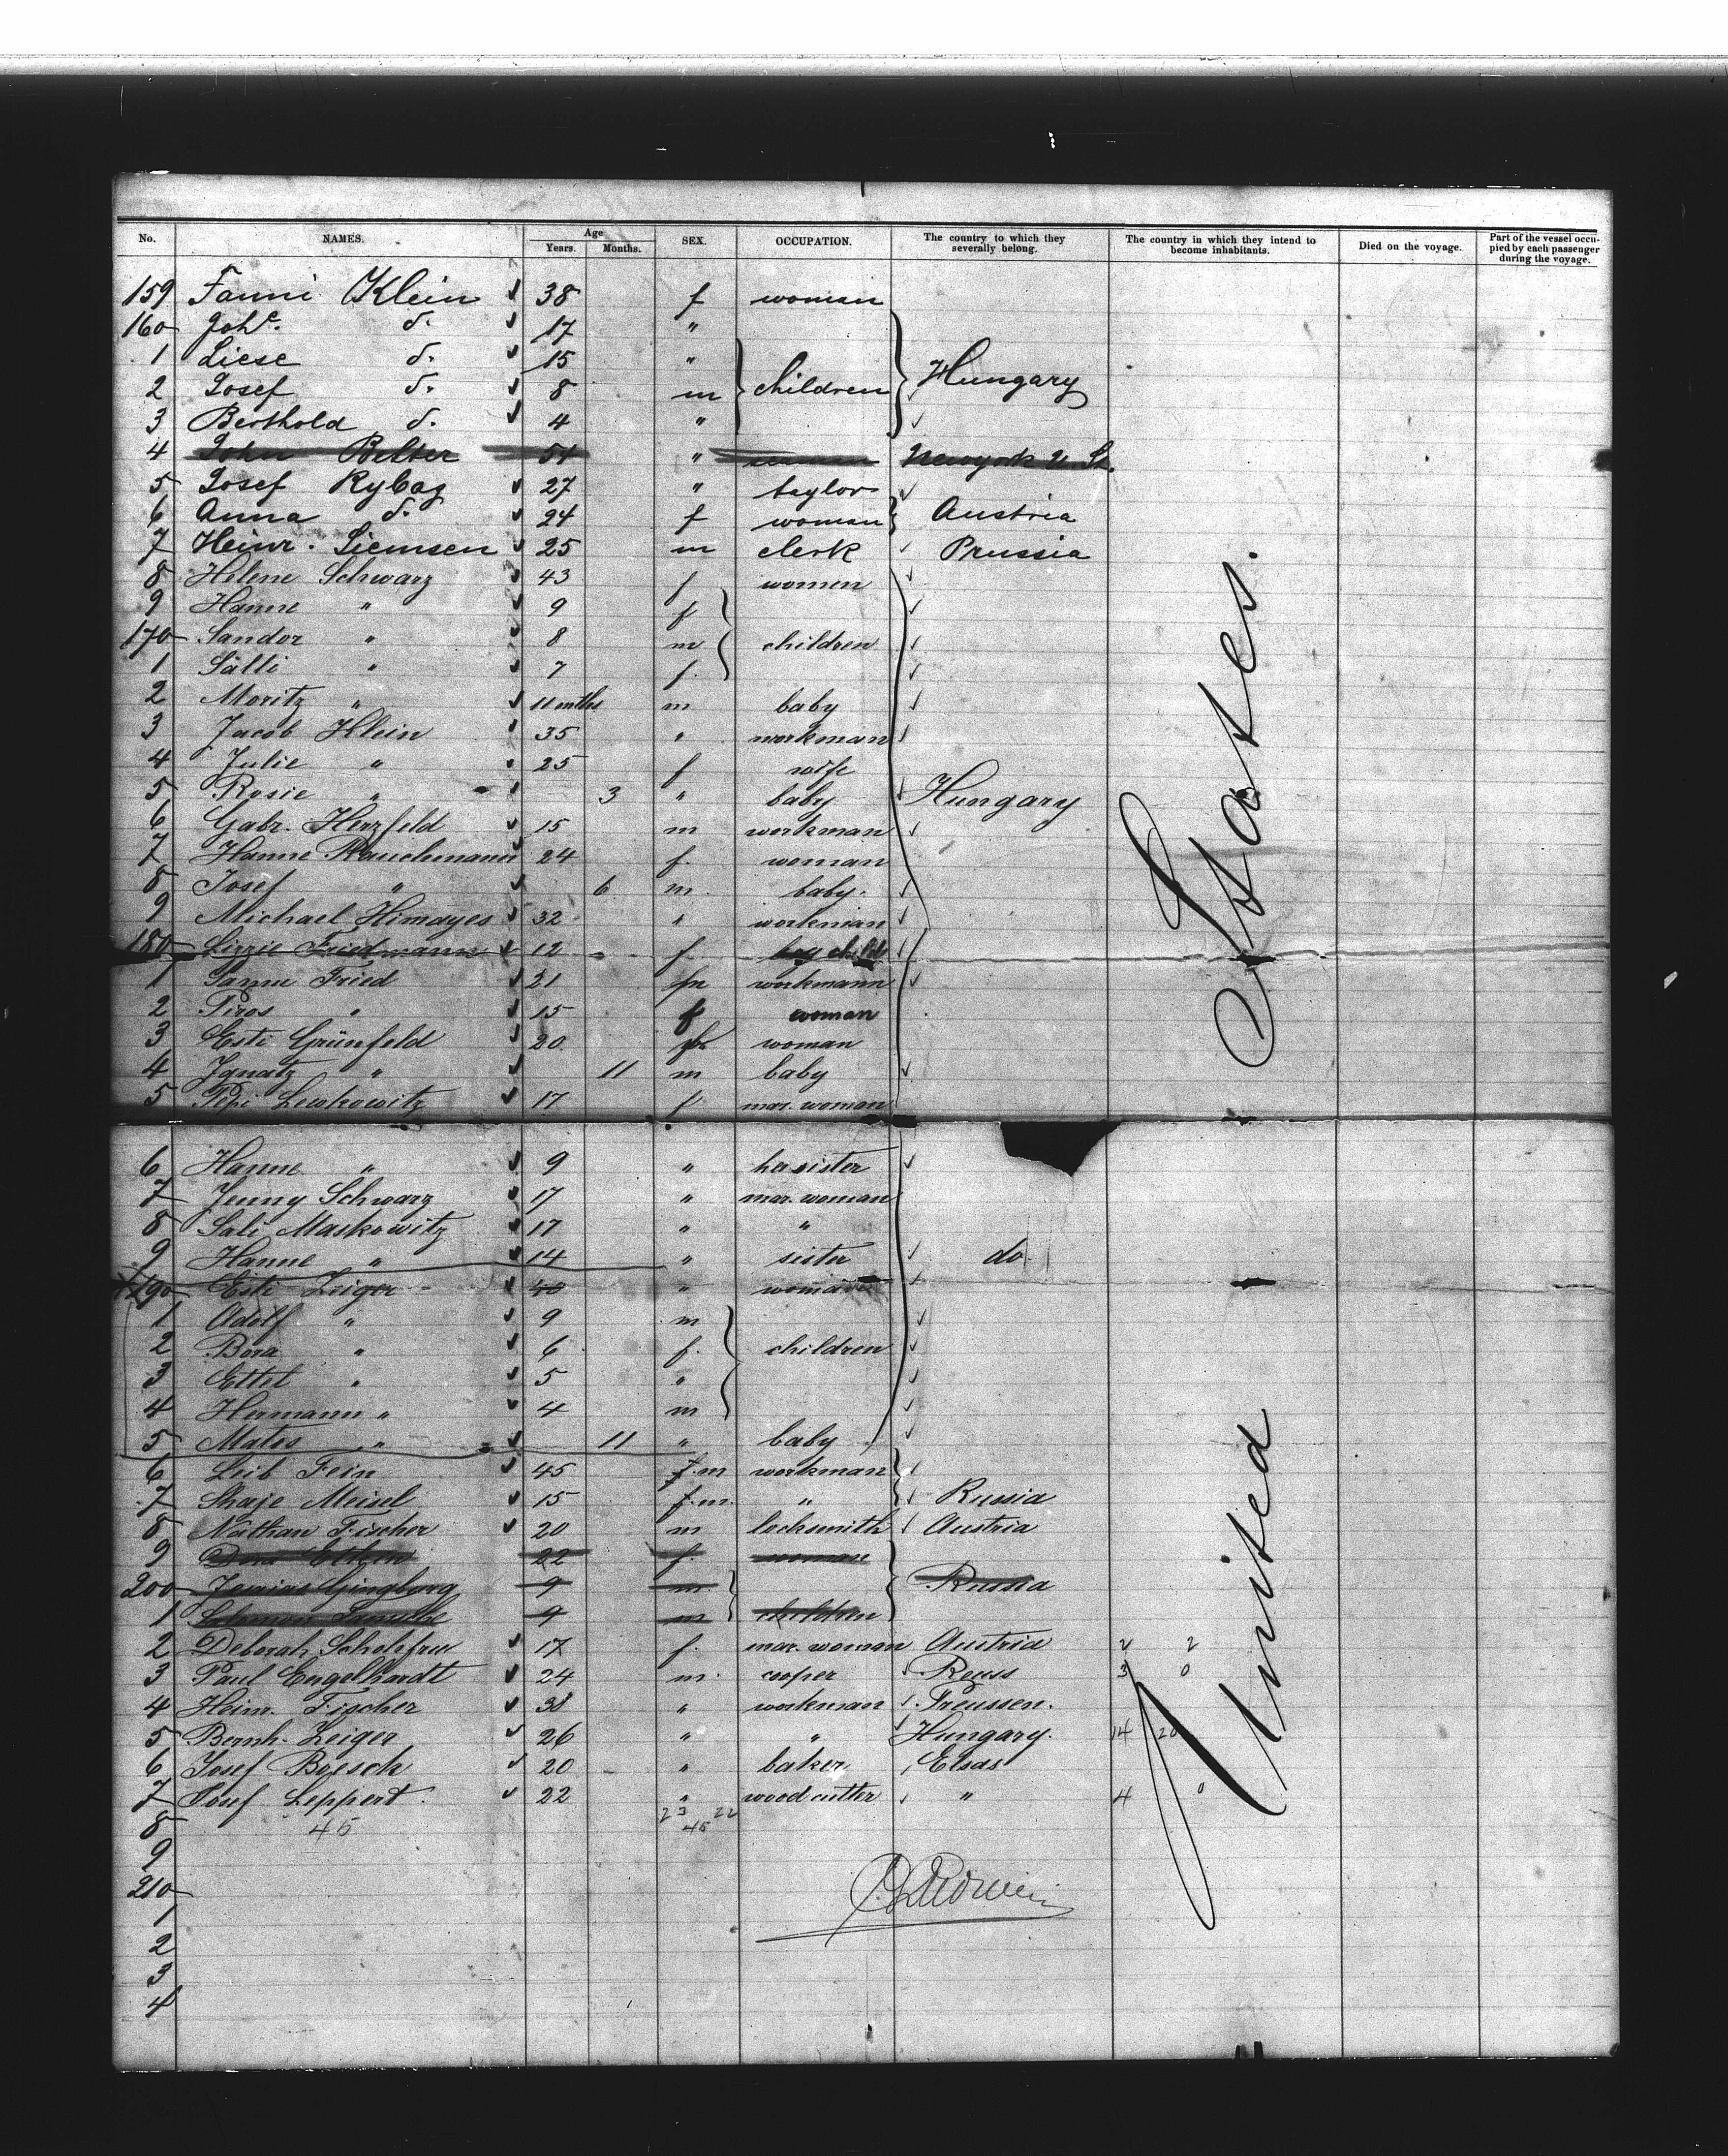 No. NAMES. Age Years. Months. SEX. OCCUPATION. The country to which they severally belong. The country in which they intend to become inhabitants. Died on the voyage. Part of the vessel occupied by each passenger during the voyage.
159 Fanni Klein 38 f woman
160 Joh^e. d. 17 "
1 Liese d. 15 "
2 Josef d. 8 m children Hungary
3 Berthold d. 4 "
4 John Belter 51 " Newyork U. St.
5 Josef Rybag 27 " taylor
6 Anna d. 24 f woman Austria
7 Heinr. Siemsen 25 m clerk Prussia
8 Helene Schwarz 43 f women
9 Hanne " 9 f
170 Sandor " 8 m children
1 Sälli " 7 f.
2 Moritz " 11 mths m baby
3 Jacob Klein 35 " workman
4 Julie " 25 f wife
5 Rosie " 3 " baby Hungary
6 Gabr. Herzfeld 15 m workman
7 Hanne Rauchmann 24 f. woman
8 Josef " 6 m. baby.
9 Michael Himayes 32 " workman
180 Lizzie Friedmann 12 f child
1 Fried 21 m workmann
2 Piros " 15 f woman
3 Esti Grünfeld 20 f woman
4 Ignatz " 11 m baby
5 Pepi Lewkowitz 17 f mar. woman
6 Hanne " 9 " her sister
7 Jenny Schwarz 17 " mar. woman
8 Sali Maskowitz 17 " "
9 Hanne " 14 " sister do.
190 Esti Zeiger 40 " woman
1 Adolf " 9 m
2 Bora " 6 f. children
3 Ettel " 5 "
4 Hermann " 4 m
5 Mates " 11 " baby
6 Leib Fein 45 f m workman
7 Shaje Meisel 15 f. m. " Russia
8 Nathan Fischer 20 m locksmith Austria
9 22 f. woman
200 Gingberg 9 m Russia
1 Salomon 9 m children
2 Deborah 17 f. mar. woman Austria 2 2
3 Paul Engelhardt 24 m. cooper Reuss 3 0
4 Heinr. Fischer 38 " workman Preussen.
5 Bernh. Zeiger 26 " " Hungary. 14 20
6 Josef Boesch 20 " baker Elsas
7 Josef Leppert. 22 " wood cutter " 4 0
8 45 23 22
45
9
210
1
2
3
4
United States.